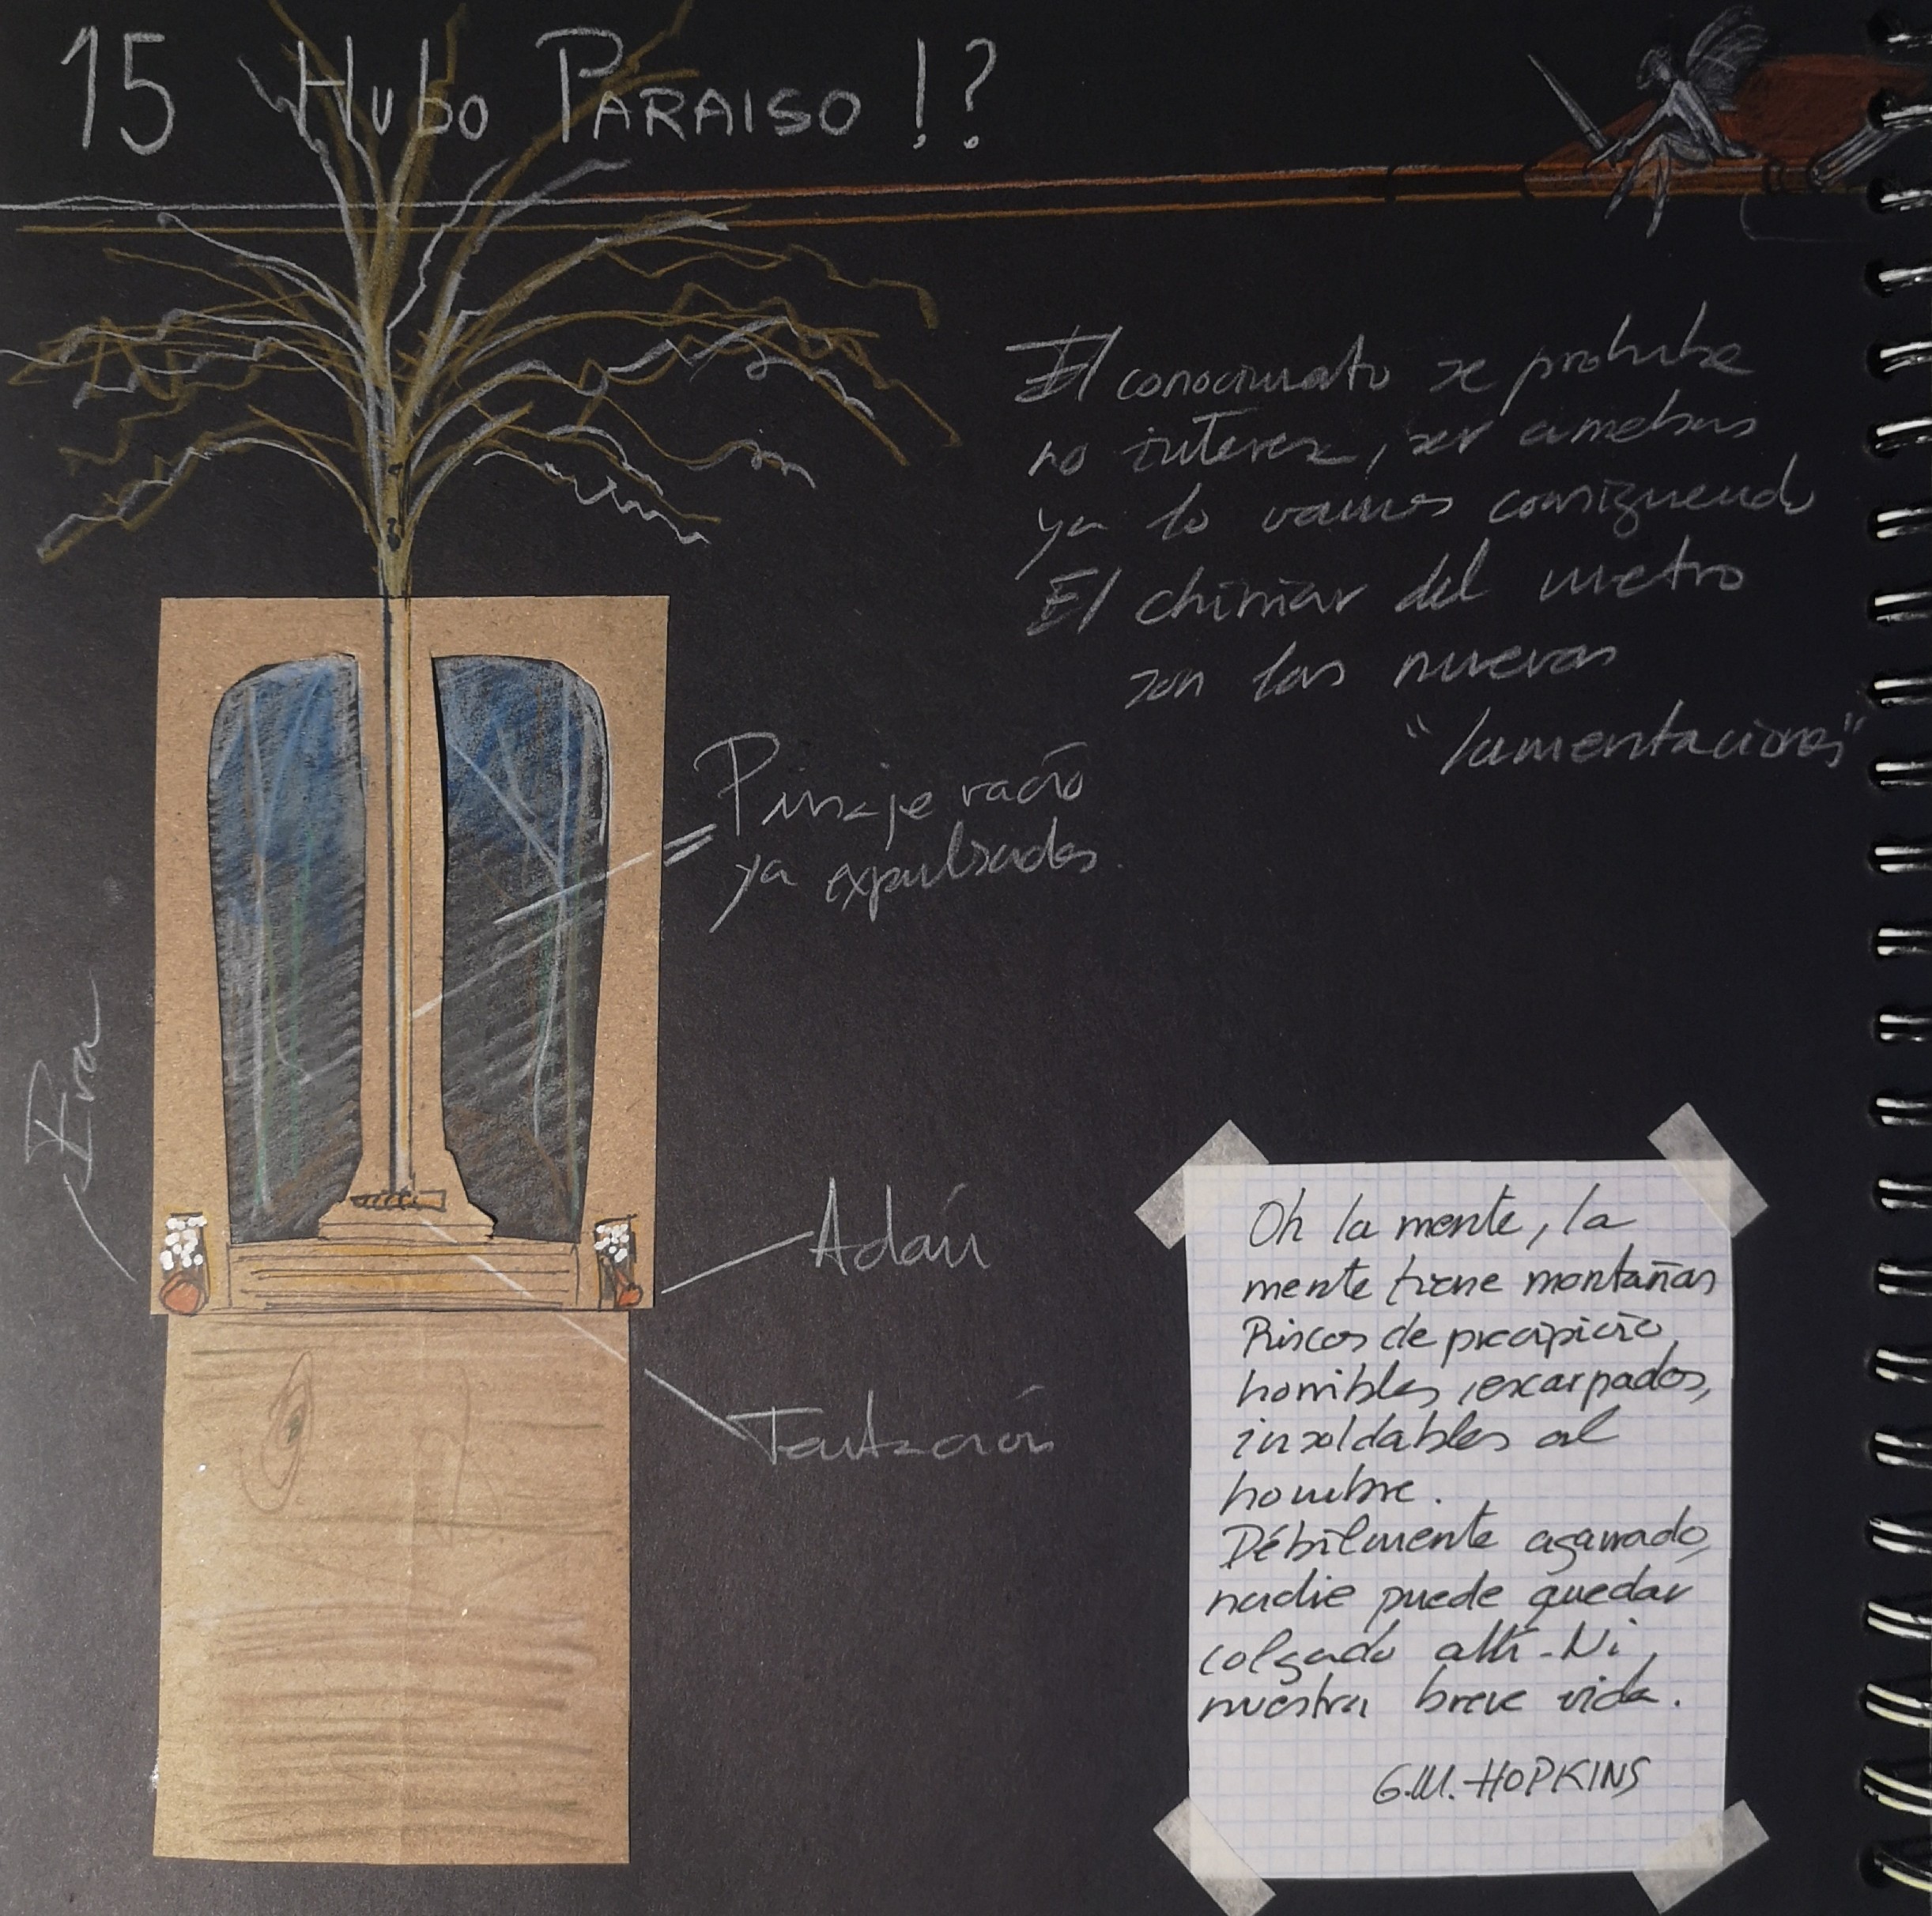 15 Hubo PARAISO !?
El conocimiento se prohibe
no interesa, ser amebas
ya lo vamos consiguiendo
El chirriar del metro
son las nuevas
"lamentaciones"
Paisaje vacío
ya expulsados.
Eva
Adán
Tentación
Oh la mente, la
mente tiene montañas
Riscos de precipicio,
horribles, escarpados,
insoldables al
hombre.
Débilmente agarrado,
nadie puede quedar
colgado allí - Ni
nuestra breve vida.
G.M. HOPKINS